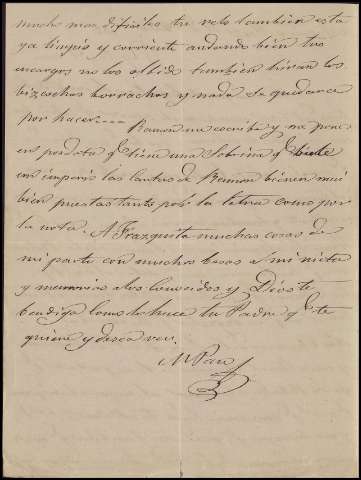 mucho mas dificiles tu velo tambien esta
ya limpio y corriente andando bien tus
encargos no los olbido tambien hiran los
bizcochos borrachos y nada se quedara
por hacer----
Ramon me escribe y me pone
en posdata q.e tiene una Sobrina q.e
un imperio las cartas de Ramon bienen mui
bien puestas tanto por la letra como por
la nota. A Frazquita muchas cosas de
mi parte con muchos besos a mi nieta
y memorias a los conocidos y Dios te
bendiga como lo hace tu Padre q.e te
quiere y desea ver.
M Pan